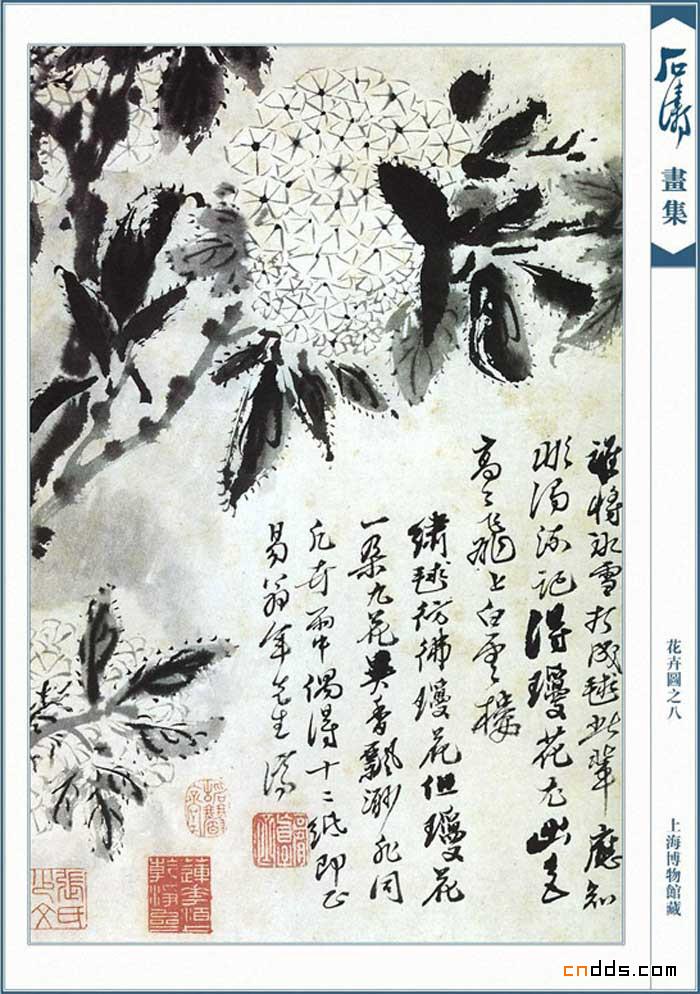 石濤
畫集
花卉圖之八
上海博物館藏
誰將冰雪打成毬此輩應知
記得瓊花
高々飛上白雲樓
繡毬彷彿瓊花但瓊花
一朵九花異香飄渺非同
凡卉雨中偶得十二紙即正
易翁年先生 濟
cndds.com